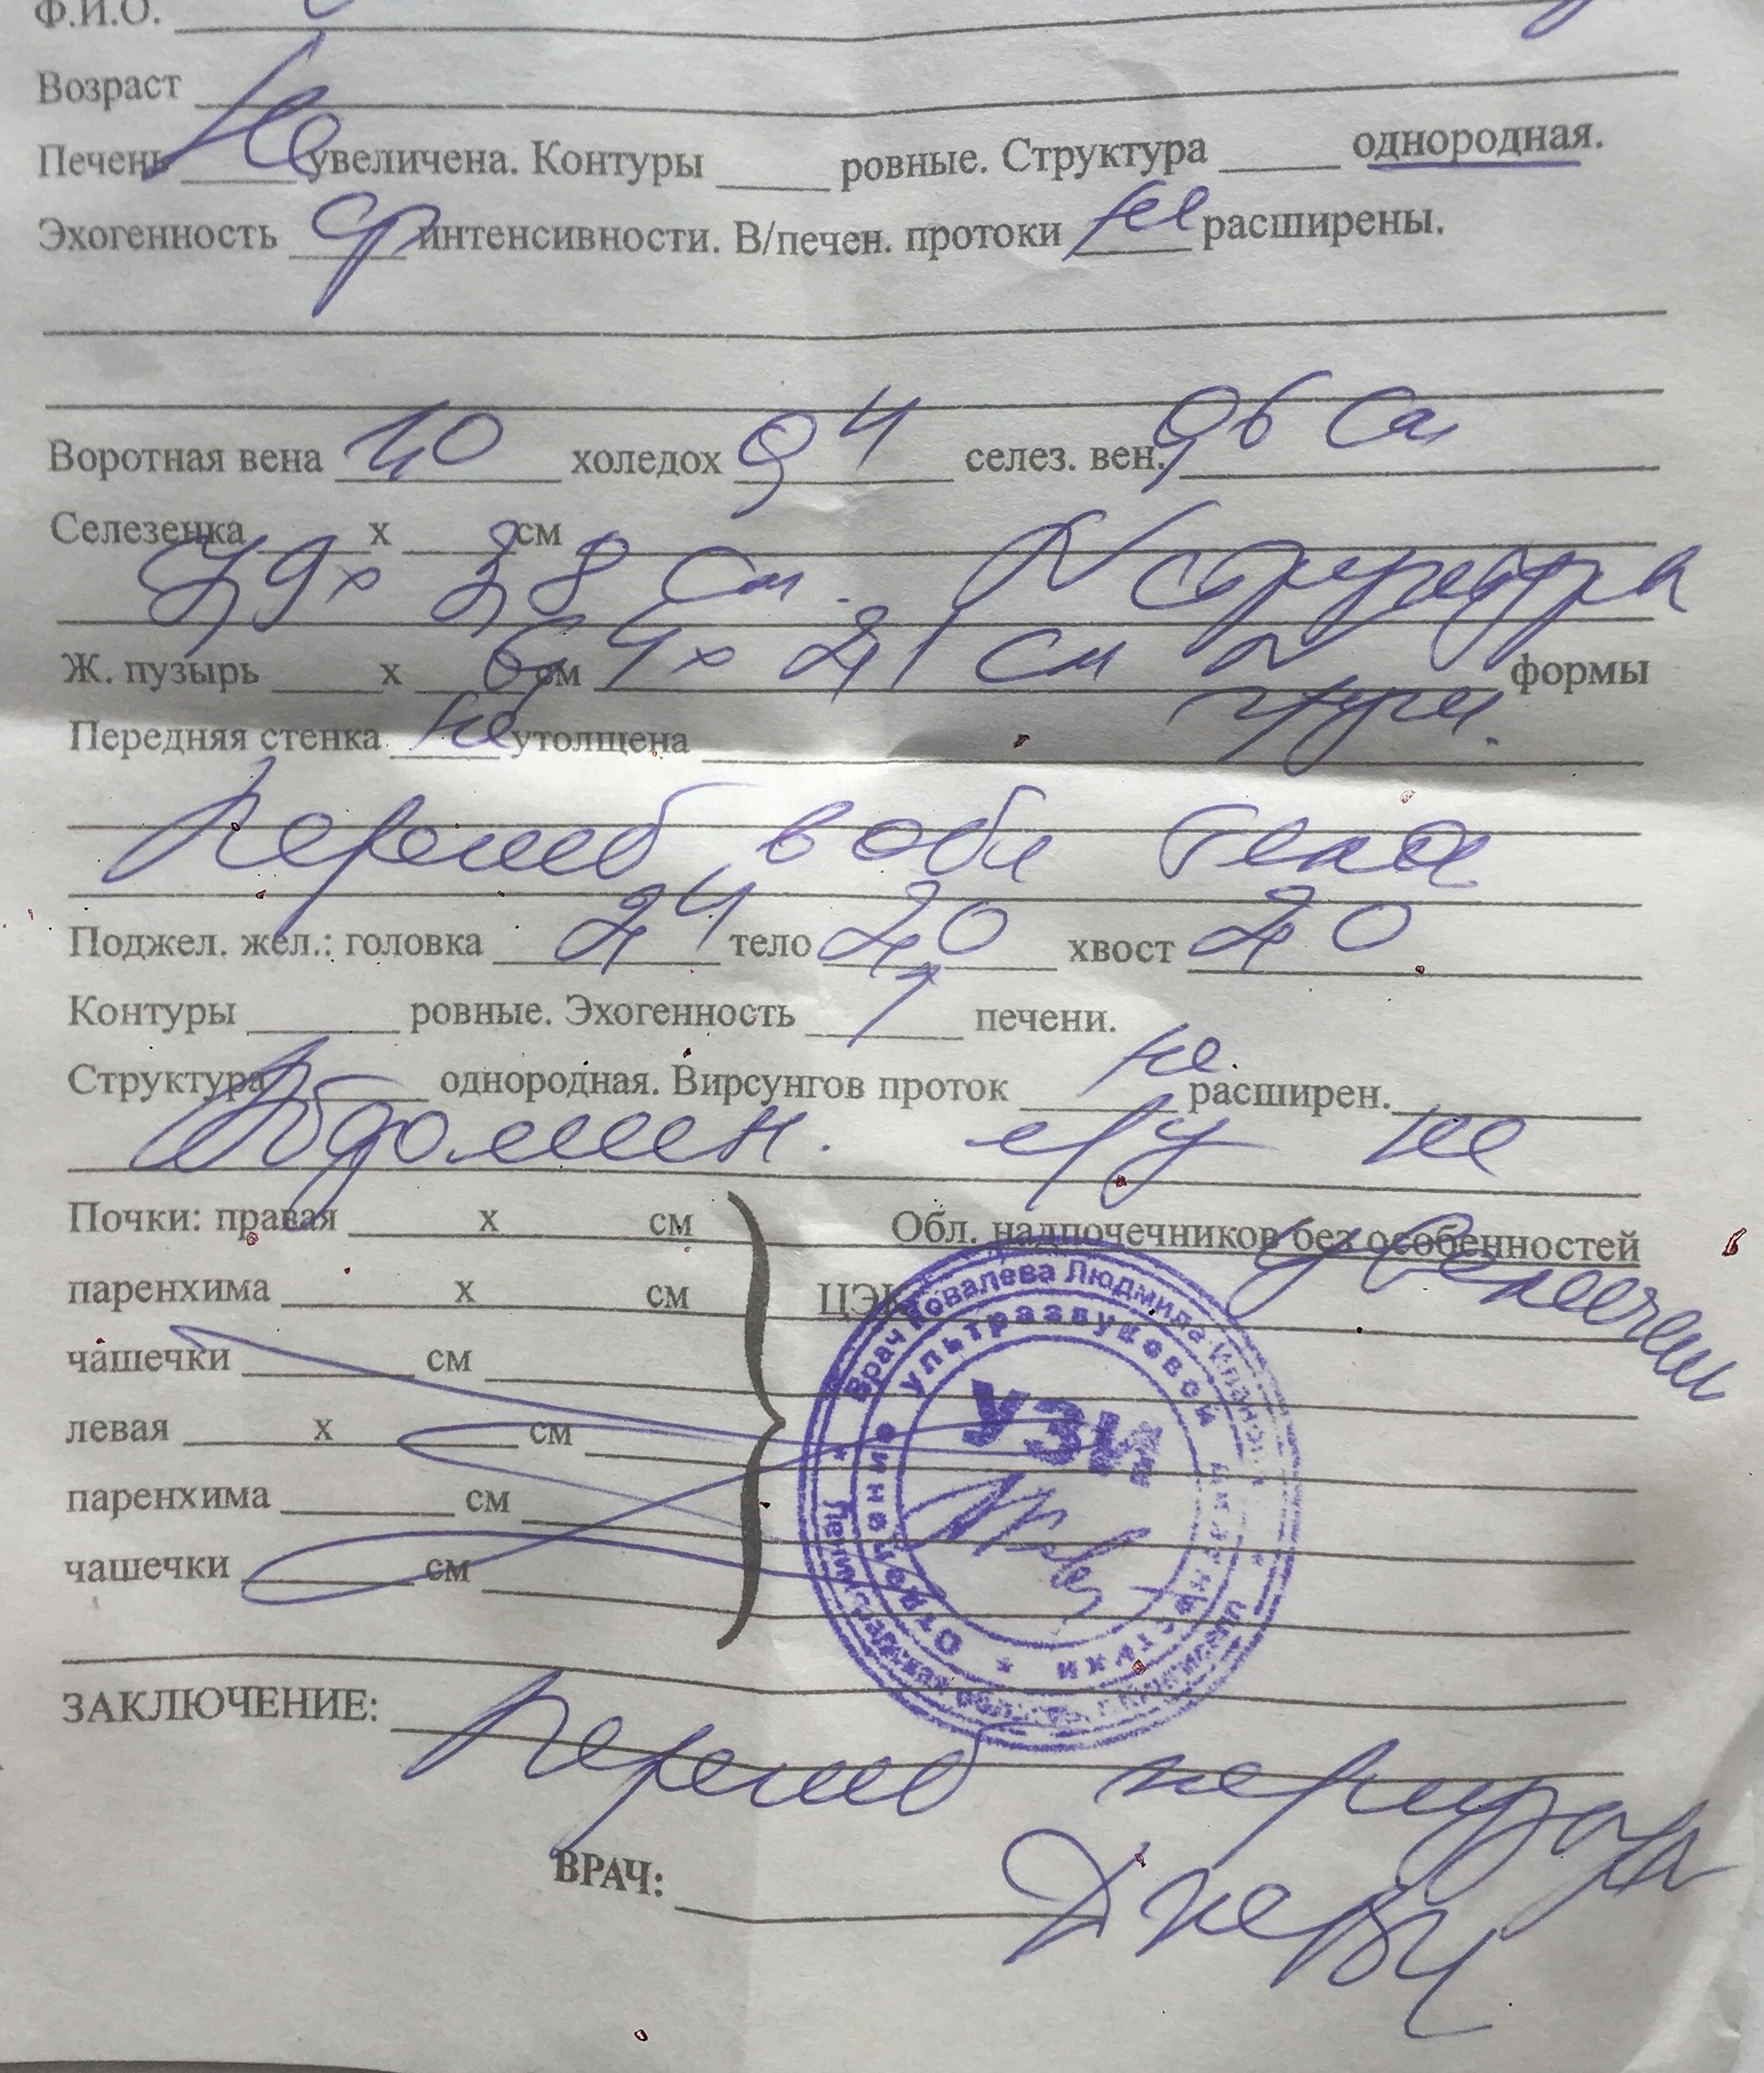 Ф.И.О.
Возраст
Печень не увеличена. Контуры ровные. Структура однородная.
Эхогенность ср интенсивности. В/печен. протоки не расширены.
Воротная вена 1,0 холедох 0,4 селез. вен. 0,6 см
Селезенка х см
7,9 х 3,8 см. N структура
Ж. пузырь х см 6,4 х 2,1 см формы
Передняя стенка не утолщена
Перегиб в обл тела
Поджел. жел.: головка 2,4 тело 2,0 хвост 2,0
Контуры ровные. Эхогенность ↑ печени.
Структура однородная. Вирсунгов проток не расширен.
Абдомин. л/у не увеличены
Почки: правая х см Обл. надпочечников без особенностей
паренхима х см ЦЭК
чашечки см
левая х см
паренхима см
чашечки см
Врач Ковалева Людмила Ивановна
Отделение ультразвуковой диагностики
УЗИ
ЗАКЛЮЧЕНИЕ:
Перегиб пузыря
ВРАЧ: